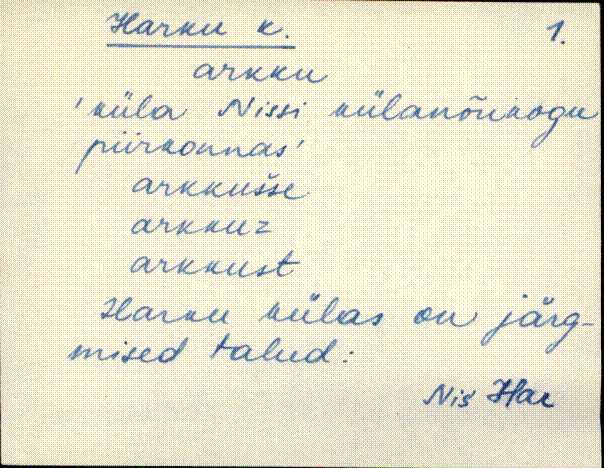 Harku k.
1.
arkku
'küla Nissi külanõukogu
piirkonnas'
arkkušse
arkkuz
arkkust
Harku külas on järg-
mised talud:
Nis Har